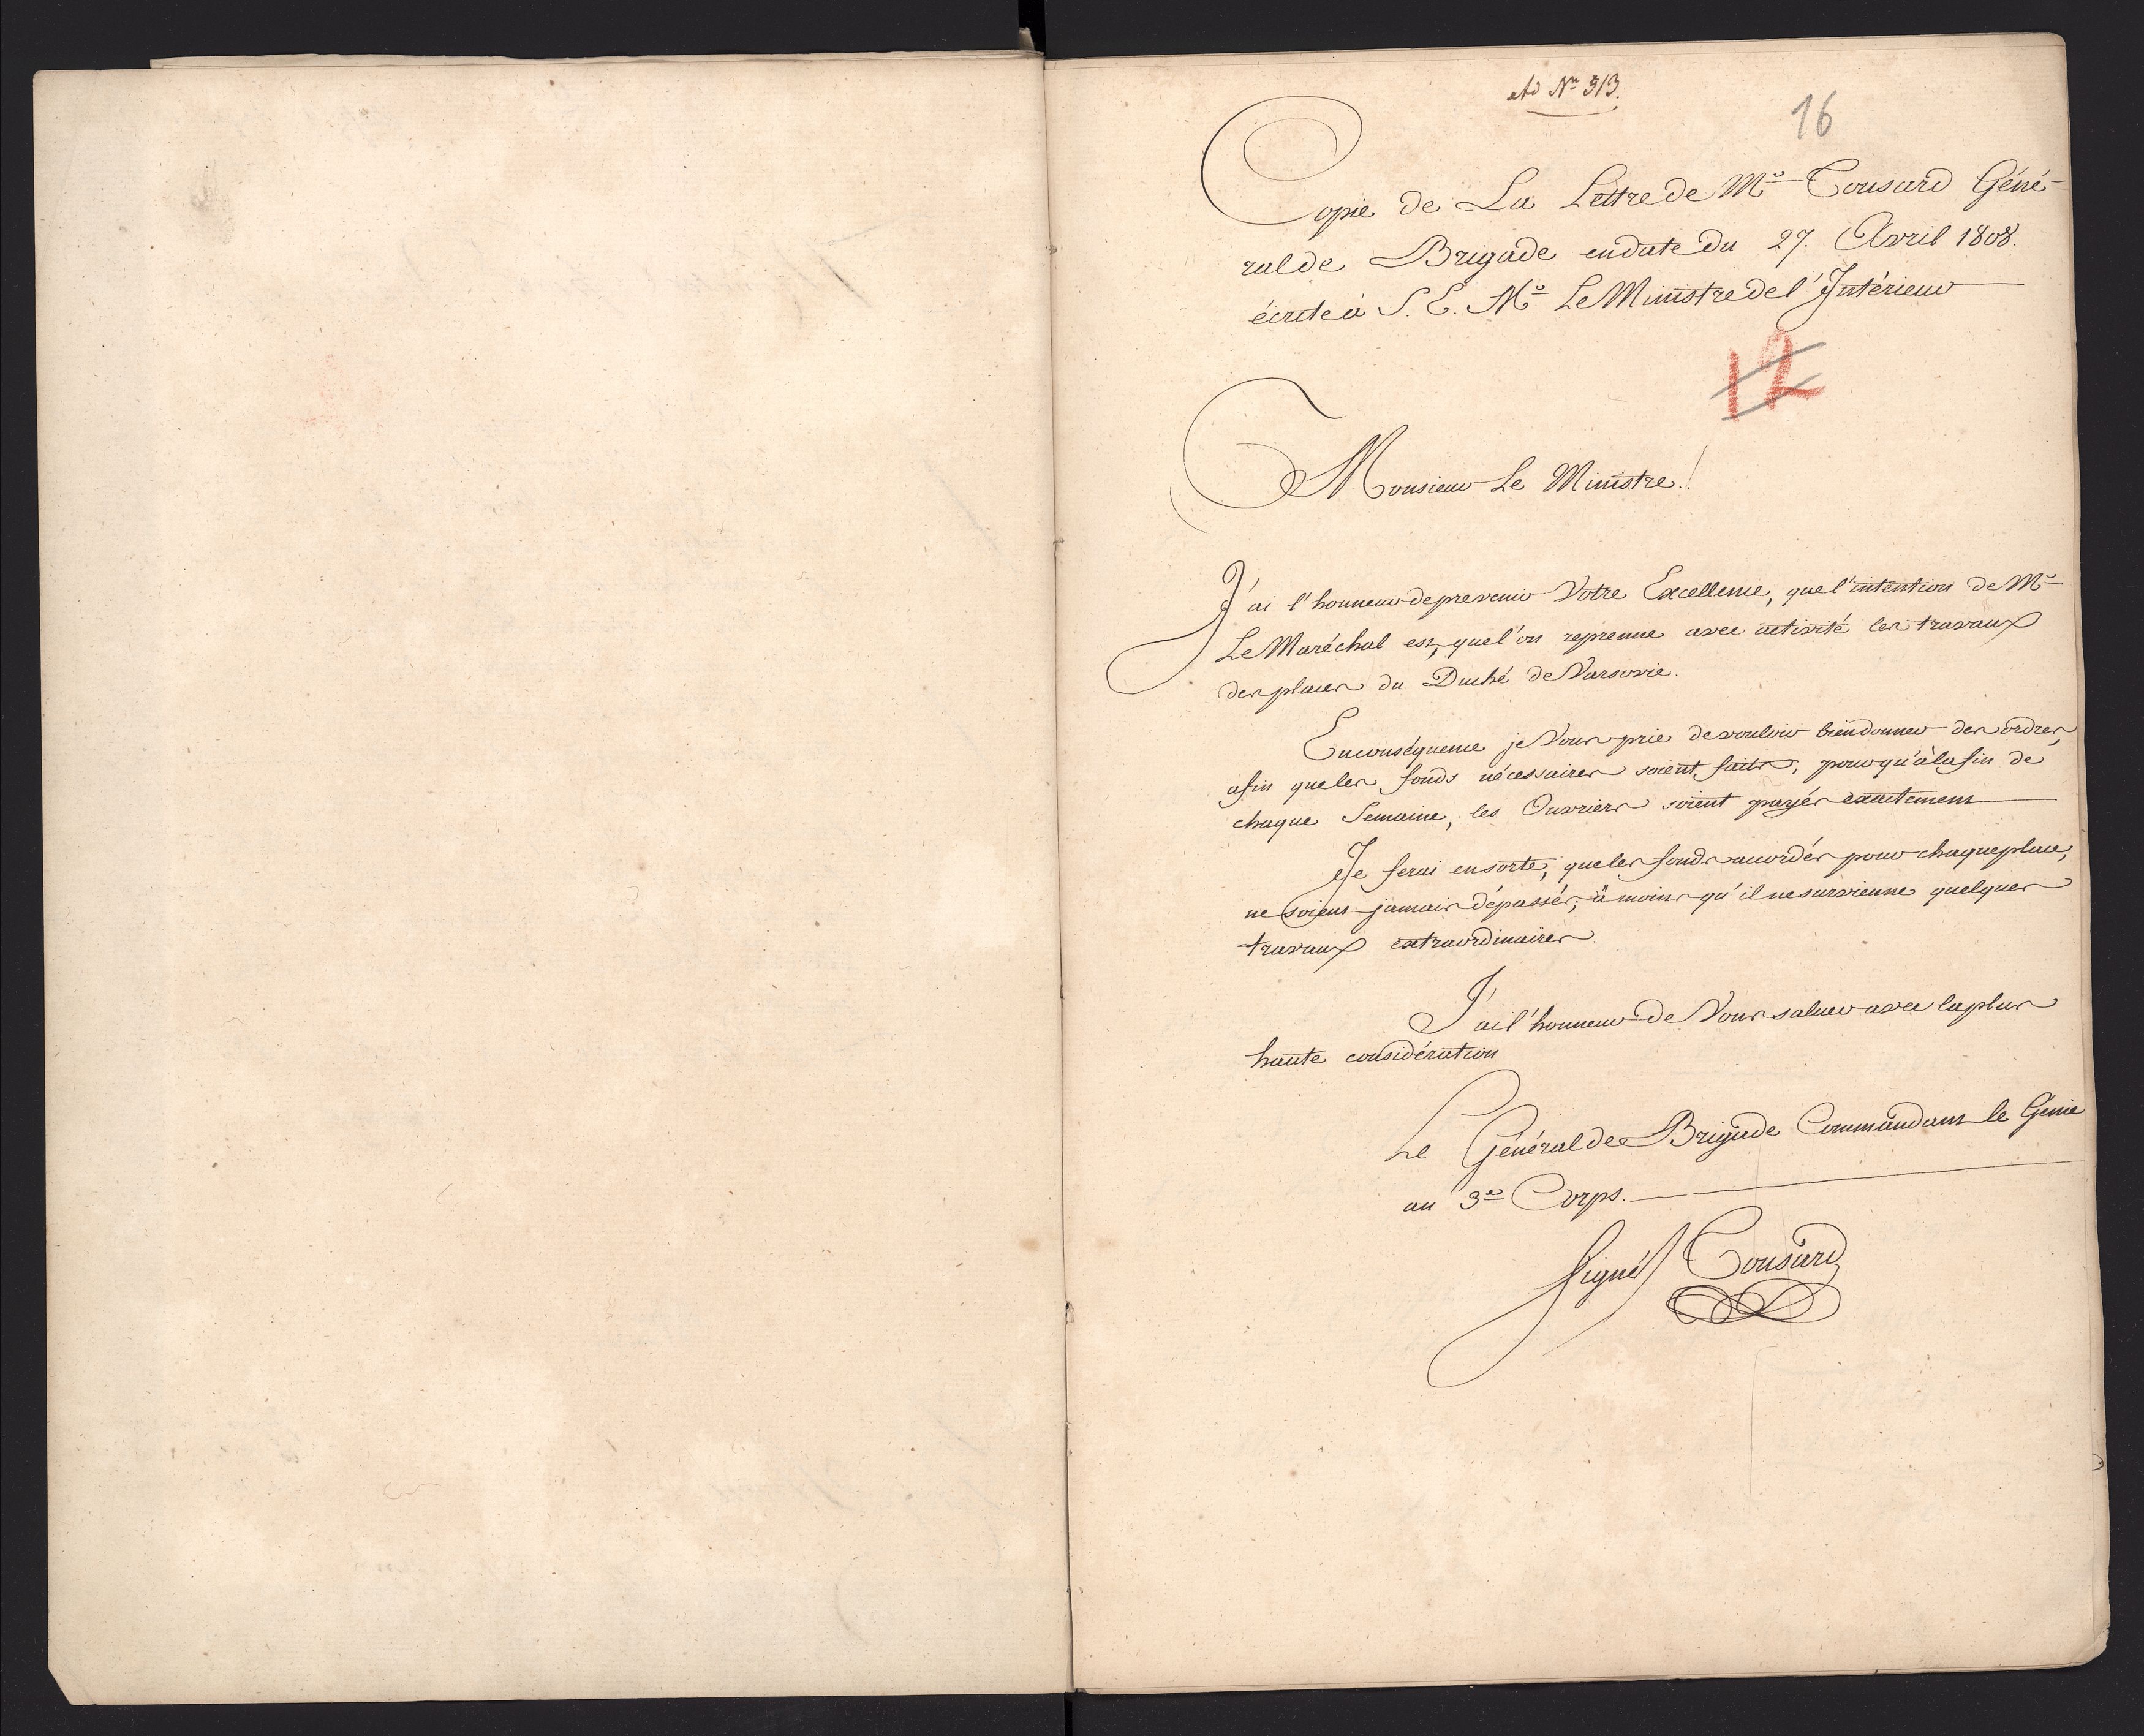 Ad Nr 513.
16
Copie de La Lettre de Mr Tousard Géné-
ral de Brigade en date du 27. Avril 1808.
écrite à S. E. Mr Le Ministre de l'Intérieur
12
Monsieur Le Ministre!
J'ai l'honneur de prevenir Votre Excellence, que l'intention de Mr
Le Maréchal est, que l'on reprenne avec activité les travaux
des places du Duché de Varsovie.
En conséquence je Vous prie de vouloir bien donner des ordres,
afin que les fonds nécessaires soient faits, pour qu'à la fin de
chaque Semaine, les Ouvriers soient payés exactement
Je ferai en sorte, que les fonds accordés pour chaque place,
ne soient jamais dépassés, à moins qu'il ne survienne quelques
travaux extraordinaires.
J'ai l'honneur de Vous saluer avec la plus
haute considération
Le Général de Brigade Commandant le Genie
au 3e Corps.
Signé Tousard